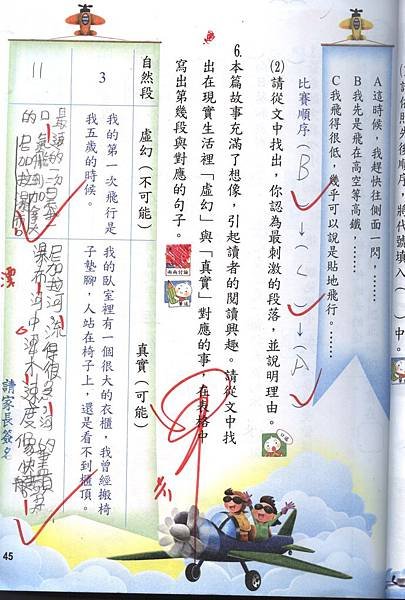 依照先後順序，將代號填入（　）中。
A 這時候，我趕快往側面一閃，……
B 我先是飛在高空等高鐵，……
C 我飛得很低，幾乎可以說是貼地飛行。……
比賽順序（B）→（C）→（A）
(2) 請從文中找出，你認為最刺激的段落，並說明理由。
6. 本篇故事充滿了想像，引起讀者的閱讀興趣。請從文中找
出在現實生活裡「虛幻」與「真實」對應的事，在表格中
寫出第幾段與對應的句子。
兩兩討論
自然段
虛幻（不可能）
真實（可能）
3
我的第一次飛行是
我五歲的時候。
我的臥室裡有一個很大的衣櫃，我曾經搬椅
子墊腳，人站在椅子上，還是看不到櫃頂。
11
最遠的一次是
尼加拉河流得很急，河的盡頭
瀑布，河中
請家長簽名
45